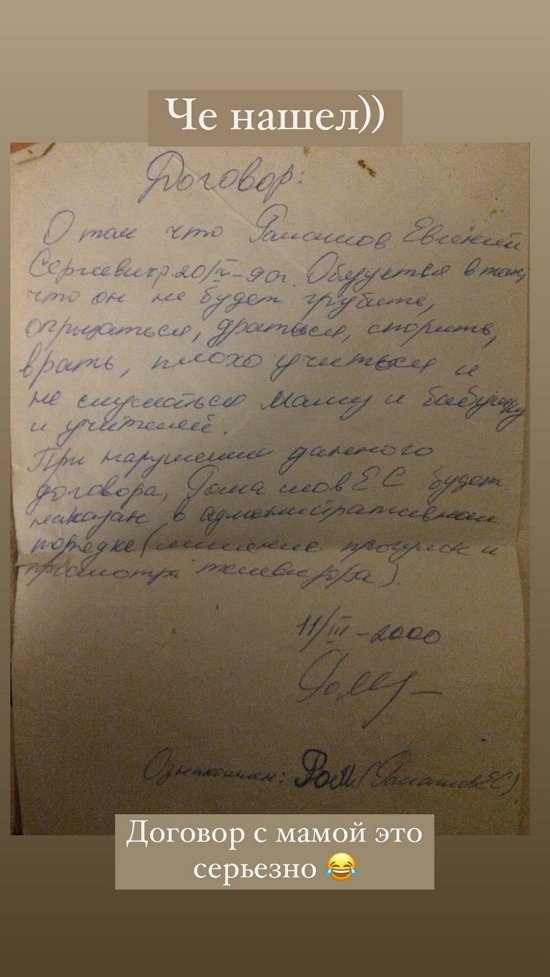 Че нашел))
Договор:
О том что Ромашов Евгений
Сергеевич 20/IV-90г. Обязуется в том,
что он не будет грубить,
огрызаться, драться, спорить,
врать, плохо учиться и
не слушаться маму и бабушку
и учителей.
При нарушении данного
договора, Ромашов ЕС будет
наказан в административном
порядке (лишение прогулок и
просмотра телевизора).
11/III-2000
Ознакомлен: (Ромашов ЕС)
Договор с мамой это
серьезно 😂